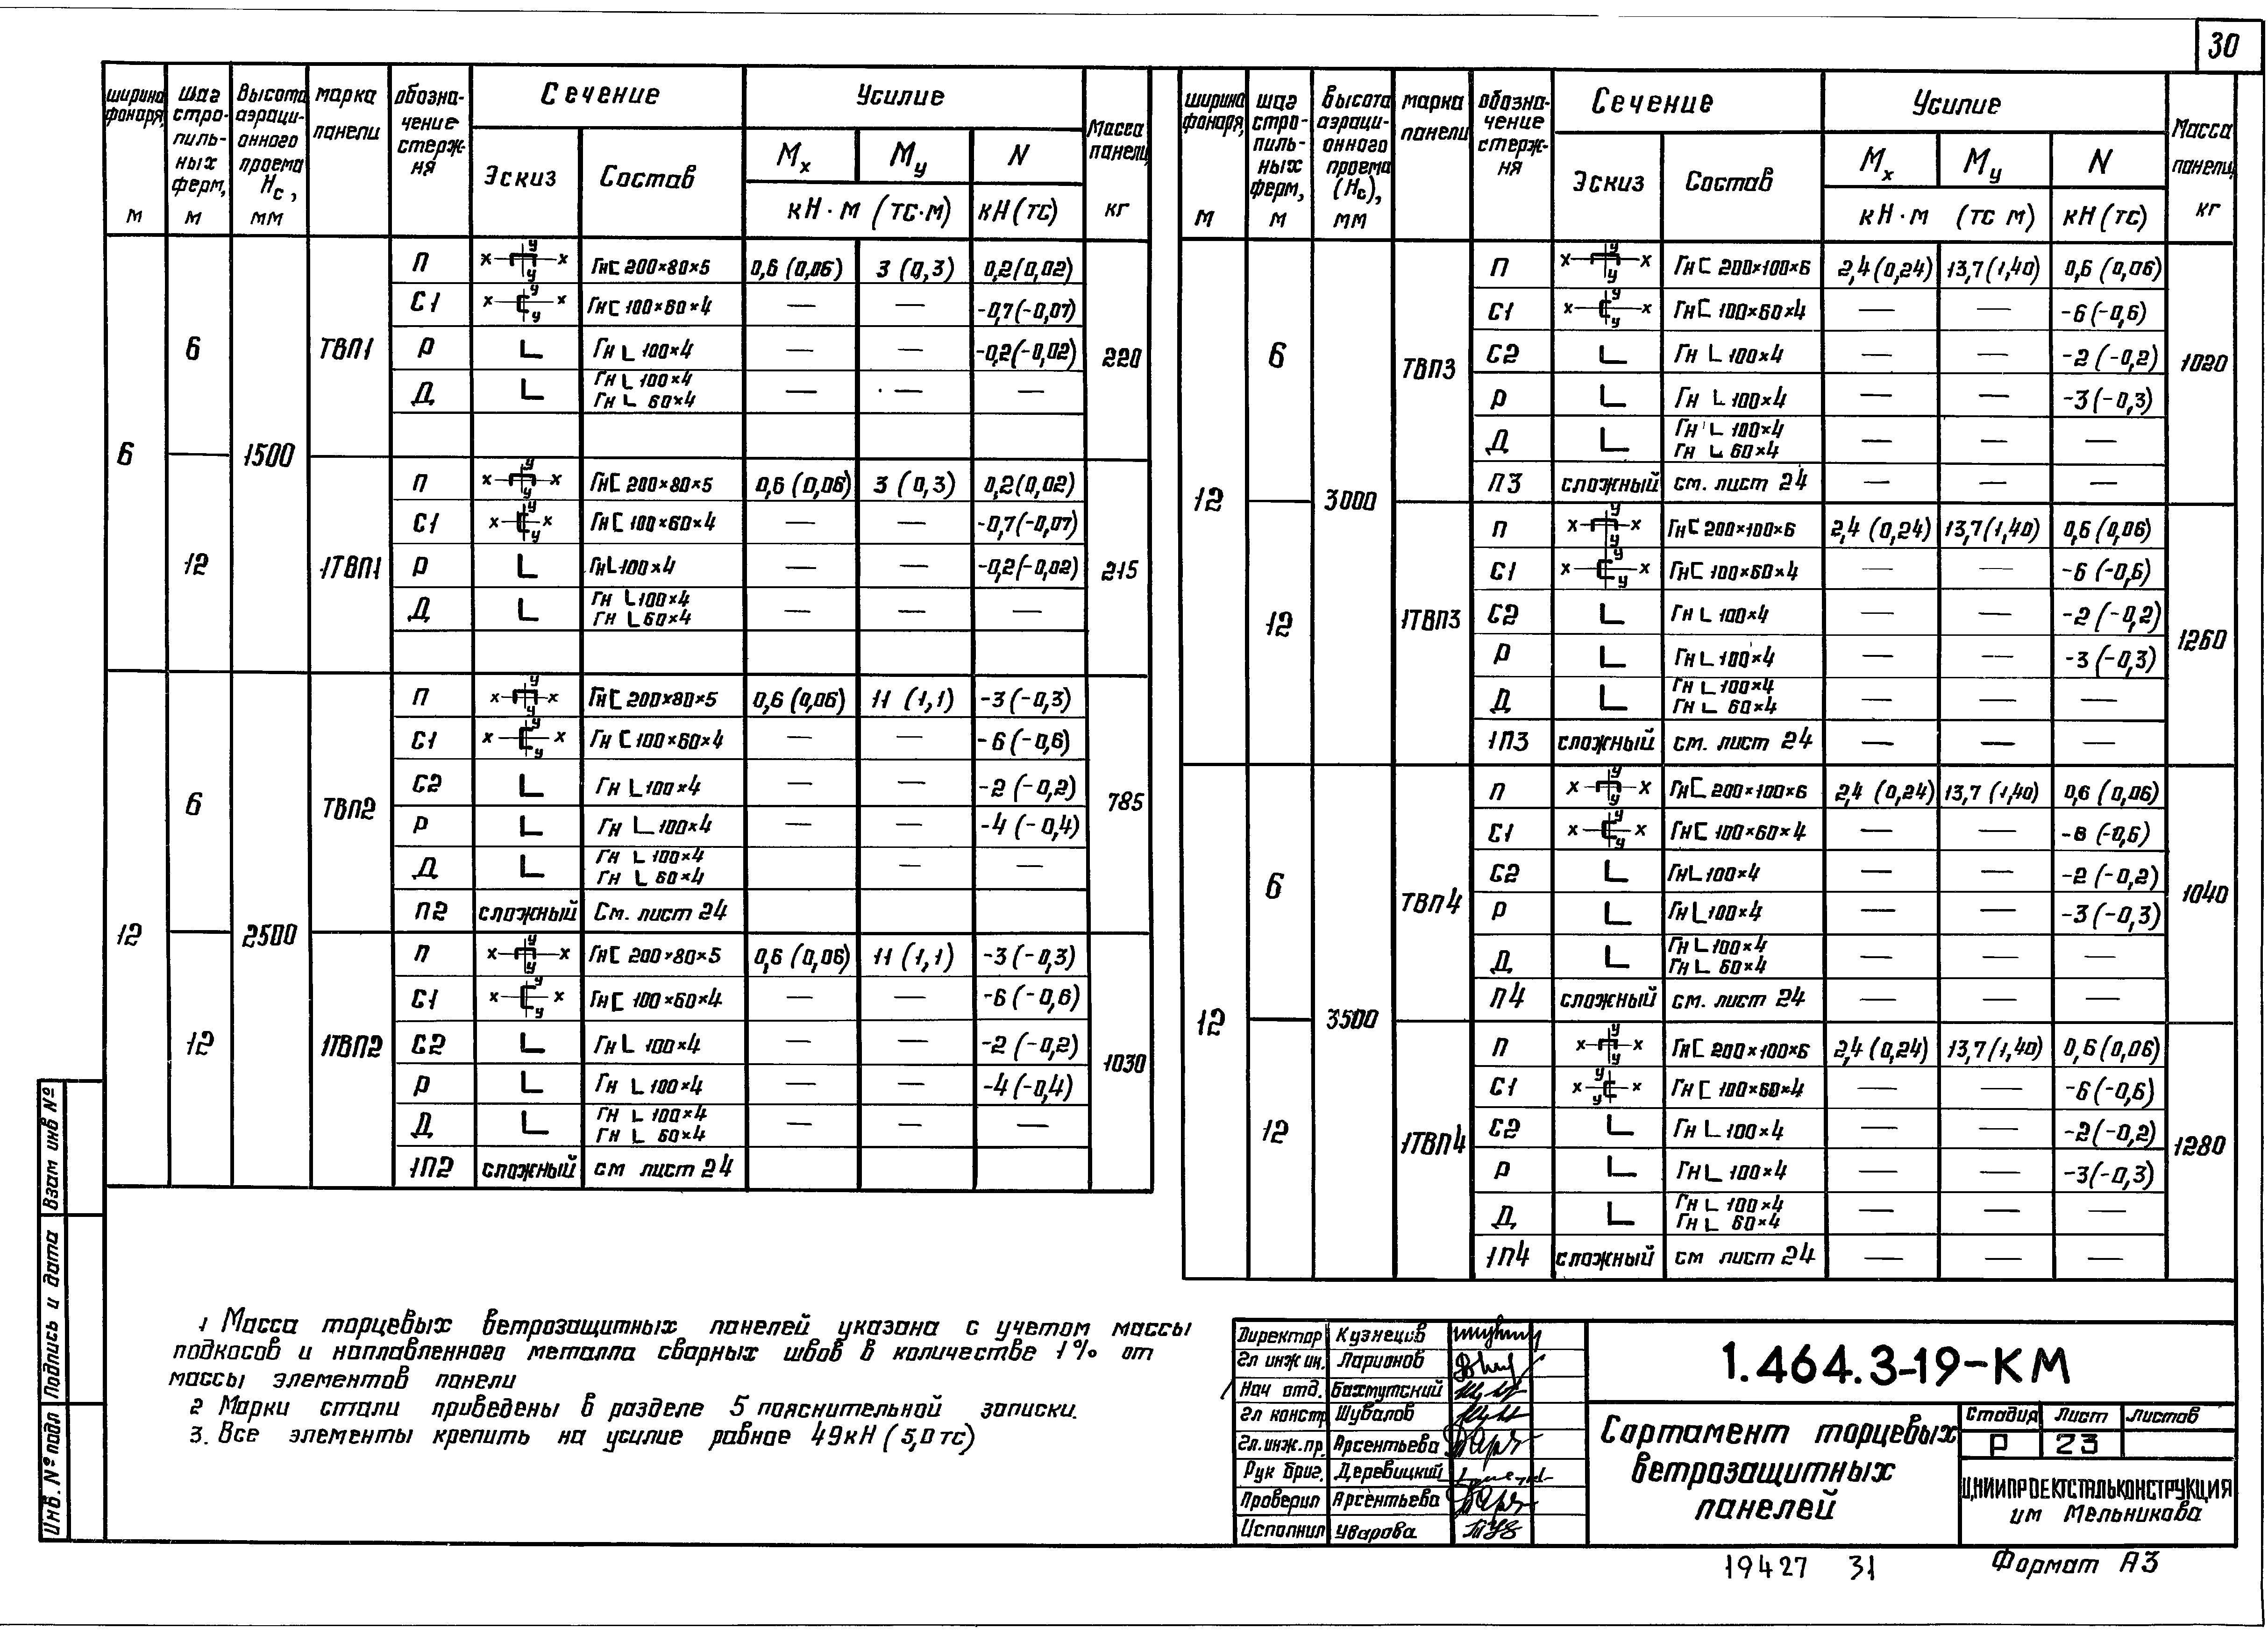 30
ширина фонаря, м | шаг стропильных ферм, м | Высота аэрационного проема Hс, мм | марка панели | обозначение стержня | Сечение | Усилие | Масса панели, кг
Эскиз | Состав | Mx | My | N
кН·м (тс·м) | кН (тс)
6 | 6 | 1500 | ТВП1 | 220
П | x y x y | Гн[ 200×80×5 | 0,6 (0,06) | 3 (0,3) | 0,2 (0,02)
С1 | x y x y | Гн[ 100×60×4 | — | — | -0,7 (-0,07)
Р | Гн L 100×4 | — | — | -0,2 (-0,02)
Д | Гн L 100×4 | — | — | —
Гн L 60×4
12 | 1ТВП1 | 215
П | x y x y | Гн[ 200×80×5 | 0,6 (0,06) | 3 (0,3) | 0,2 (0,02)
С1 | x y x y | Гн[ 100×60×4 | — | — | -0,7 (-0,07)
Р | Гн L 100×4 | — | — | -0,2 (-0,02)
Д | Гн L 100×4 | — | — | —
Гн L 60×4
12 | 6 | 2500 | ТВП2 | 785
П | x y x y | Гн[ 200×80×5 | 0,6 (0,06) | 11 (1,1) | -3 (-0,3)
С1 | x y x y | Гн [ 100×60×4 | — | — | -6 (-0,6)
С2 | Гн L 100×4 | — | — | -2 (-0,2)
Р | Гн L 100×4 | — | — | -4 (-0,4)
Д | Гн L 100×4 | — | —
Гн L 60×4
П2 | сложный | См. лист 24
12 | 1ТВП2 | 1030
П | x y x y | Гн[ 200×80×5 | 0,6 (0,06) | 11 (1,1) | -3 (-0,3)
С1 | x y x y | Гн[ 100×60×4 | — | — | -6 (-0,6)
С2 | Гн L 100×4 | — | — | -2 (-0,2)
Р | Гн L 100×4 | — | — | -4 (-0,4)
Д | Гн L 100×4 | — | — | —
Гн L 60×4
1П2 | сложный | см лист 24
ширина фонаря, м | шаг стропильных ферм, м | высота аэрационного проема (Hс), мм | марка панели | обозначение стержня | Сечение | Усилие | Масса панели, кг
Эскиз | Состав | Mx | My | N
кН·м (тс м) | кН (тс)
12 | 6 | 3000 | ТВП3 | 1020
П | x y x y | Гн[ 200×100×6 | 2,4 (0,24) | 13,7 (1,40) | 0,6 (0,06)
С1 | x y x y | Гн[ 100×60×4 | — | — | -6 (-0,6)
С2 | Гн L 100×4 | — | — | -2 (-0,2)
Р | Гн L 100×4 | — | — | -3 (-0,3)
Д | Гн L 100×4 | — | — | —
Гн L 60×4
П3 | сложный | см. лист 24 | — | — | —
12 | 1ТВП3 | 1260
П | x y x y | Гн[ 200×100×6 | 2,4 (0,24) | 13,7 (1,40) | 0,6 (0,06)
С1 | x y x y | Гн[ 100×60×4 | — | — | -6 (-0,6)
С2 | Гн L 100×4 | — | — | -2 (-0,2)
Р | Гн L 100×4 | — | — | -3 (-0,3)
Д | Гн L 100×4 | — | — | —
Гн L 60×4
1П3 | сложный | см. лист 24 | — | — | —
12 | 6 | 3500 | ТВП4 | 1040
П | x y x y | Гн[ 200×100×6 | 2,4 (0,24) | 13,7 (1,40) | 0,6 (0,06)
С1 | x y x y | Гн[ 100×60×4 | — | — | -6 (-0,6)
С2 | Гн L 100×4 | — | — | -2 (-0,2)
Р | Гн L 100×4 | — | — | -3 (-0,3)
Д | Гн L 100×4 | — | — | —
Гн L 60×4
П4 | сложный | см. лист 24 | — | — | —
12 | 1ТВП4 | 1280
П | x y x y | Гн[ 200×100×6 | 2,4 (0,24) | 13,7 (1,40) | 0,6 (0,06)
С1 | x y x y | Гн [ 100×60×4 | — | — | -6 (-0,6)
С2 | Гн L 100×4 | — | — | -2 (-0,2)
Р | Гн L 100×4 | — | — | -3 (-0,3)
Д | Гн L 100×4 | — | — | —
Гн L 60×4
1П4 | сложный | см лист 24 | — | — | —
1 Масса торцевых ветрозащитных панелей указана с учетом массы
подкосов и наплавленного металла сварных швов в количестве 1% от
массы элементов панели
2 Марки стали приведены в разделе 5 пояснительной записки.
3. Все элементы крепить на усилие равное 49кН (5,0 тс)
Инв. № подл
Подпись и дата
Взам инв №
Директор Кузнецов
Гл инж ин. Ларионов
Нач отд. Бахмутский
Гл констр Шувалов
Гл.инж.пр. Арсентьева
Рук бриг. Деревицкий
Проверил Арсентьева
Исполнил Уварова
1.464.3-19-КМ
Сортамент торцевых
ветрозащитных
панелей
Стадия Лист Листов
Р 23
ЦНИИПРОЕКТСТАЛЬКОНСТРУКЦИЯ
им Мельникова
19427 31
Формат А3